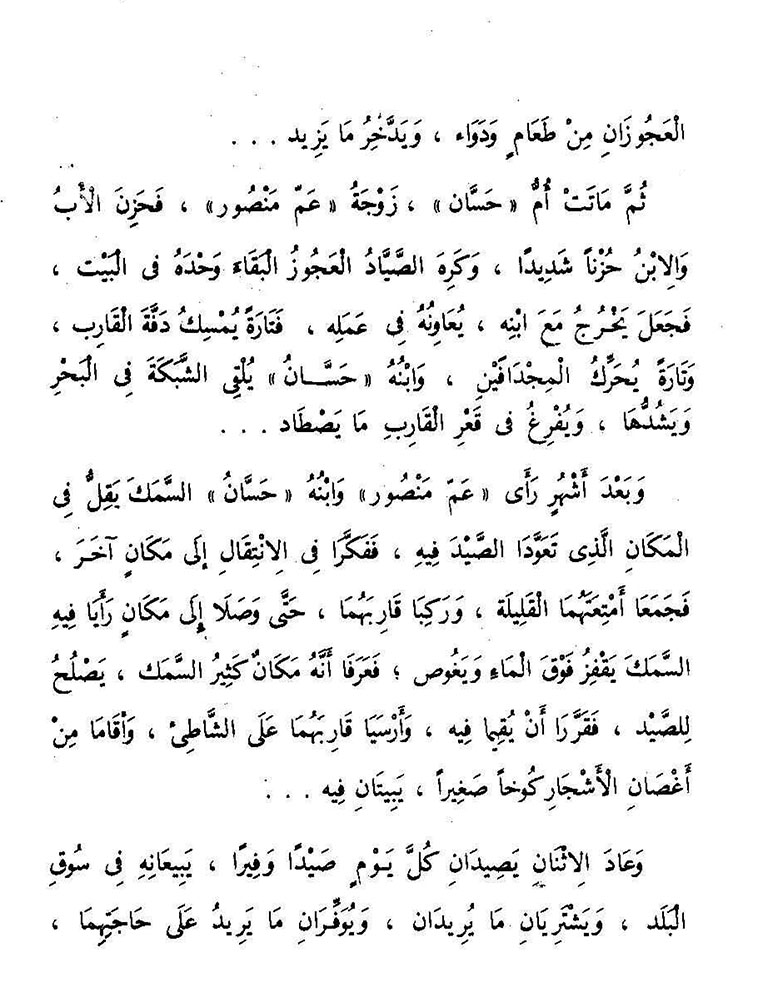 الْعَجُوزَانِ مِنْ طَعَامٍ وَدَوَاء ، وَيَدَّخِرُ مَا يَزِيد . . .
ثُمَّ مَاتَتْ أُمُّ « حَسَّان » ، زَوْجَةُ « عَمّ مَنْصُور » ، فَحَزِنَ الْأَبُ
وَالِابْنُ حُزْناً شَدِيدًا ، وَكَرِهَ الصَّيَّادُ الْعَجُوزُ الْبَقَاءَ وَحْدَهُ فى الْبَيْت ،
فَجَعَلَ يَخْرُجُ مَعَ ابْنِه ، يُعَاوِنُهُ فِى عَمَلِه ، فَتَارَةً يُمْسِكُ دَفَّةَ الْقَارِب ،
وَتَارَةً يُحَرِّكُ الْمِجْدَافَيْنِ ، وَابْنُهُ « حَسَّـانُ » يُلْقِى الشَّبَكَةَ فِى الْبَحْرِ
وَيَشُدُّهَا ، وَيُفْرِغُ فى قَعْرِ الْقَارِبِ مَا يَصْطَاد . . .
وَبَعْدَ أَشْهُرٍ رَأَى « عَمّ مَنْصُور » وَابْنُهُ « حَسَّانُ » السَّمَكَ يَقِلُّ فِى
الْمَكَانِ الَّذِى تَعَوَّدَا الصَّيْدَ فِيهِ ، فَفَكَّرَا فِى الِانْتِقَالِ إلَى مَكَانٍ آخَرَ ،
فَجَمَعَا أَمْتِعَتَهُمَا الْقَلِيلَة ، وَرَكِبَا قَارِبَهُمَا ، حَتَّى وَصَلَا إِلَى مَكَانٍ رَأَيَا فِيهِ
السَّمَكَ يَقْفِزُ فَوْقَ الْمَاءِ وَيَغُوص ؛ فَعَرَفَا أَنَّهُ مَكَانٌ كَثِيرُ السَّمَك ، يَصْلُحُ
لِلصَّيْد ، فَقَرَّرَا أَنْ يُقِيمَا فِيه ، وَأَرْسَيَا قَارِبَهُمَا عَلَى الشَّاطِئ ، وَأَقَامَا مِنْ
أَغْصَانِ الْأَشْجَارِ كُوخاً صَغِيراً ، يَبِيتَانِ فِيه . . .
وَعَادَ الِاثْنَانِ يَصِيدَانِ كُلَّ يَـوْمٍ صَيْدًا وَفِيرًا ، يَبِيعَانِهِ فِى سُوقِ
الْبَلَد ، وَيَشْتَرِيَانِ مَا يُرِيدَان ، وَيُوَفِّـرَان مَا يَزِيدُ عَلَى حَاجَتِهِمَا ،